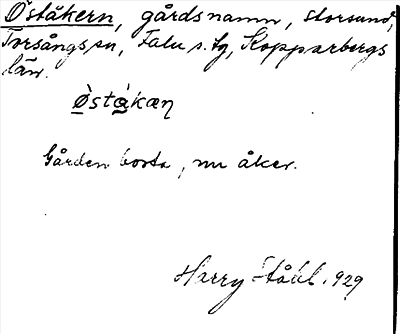 Öståkern, gårdsnamn, Storsund,
Torsångs sn, Falu s. tg, Kopparbergs
län.
Öståkæɳ
Gården borta, nu åker.
Harry Ståhl 1929